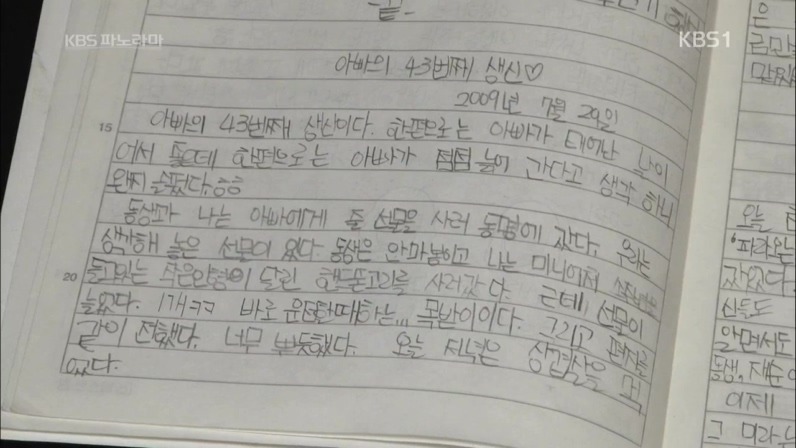 KBS 파노라마
KBS1
-끝-
아빠의 43번째 생신♡
2009년 7월 29일
15
아빠의 43번째 생신이다. 한편으로는 아빠가 태어난 날이
어서 좋은데 한편으로는 아빠가 점점 늙어 간다고 생각 하니
왠지 슬펐다.ㅎㅎ
동생과 나는 아빠에게 줄 선물을 사러 동명에 갔다. 우리는
생각해 놓은 선물이 있다. 동생은 안마봉이고 나는 미니어처
20
들고있는 작은인형이 달린 핸드폰고리를 사러갔다. 근데 선물이
늘었다. 1개ㅋㅋ 바로 운전할때하는... 목받이이다. 그리고 편지를
같이 전했다. 너무 뿌듯했다. 오늘 저녁은 삼겹살을 먹
었다.
은
오늘
'파라오는
갔었다.
산들도
알면서도
동생, 재준이
이제
그 미라는